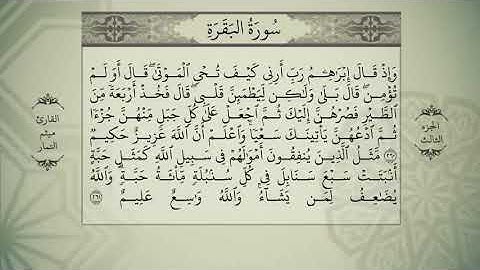 سُورَةُ البَقَرَةِ
وَإِذْ قَالَ إِبْرَٰهِـۧمُ رَبِّ أَرِنِى كَيْفَ تُحْىِ ٱلْمَوْتَىٰ ۖ قَالَ أَوَلَمْ
تُؤْمِن ۖ قَالَ بَلَىٰ وَلَٰكِن لِّيَطْمَئِنَّ قَلْبِى ۖ قَالَ فَخُذْ أَرْبَعَةً مِّنَ
ٱلطَّيْرِ فَصُرْهُنَّ إِلَيْكَ ثُمَّ ٱجْعَلْ عَلَىٰ كُلِّ جَبَلٍ مِّنْهُنَّ جُزْءًا
ثُمَّ ٱدْعُهُنَّ يَأْتِينَكَ سَعْيًا ۚ وَٱعْلَمْ أَنَّ ٱللَّهَ عَزِيزٌ حَكِيمٌ
٢٦٠ مَّثَلُ ٱلَّذِينَ يُنفِقُونَ أَمْوَٰلَهُمْ فِى سَبِيلِ ٱللَّهِ كَمَثَلِ حَبَّةٍ
أَنۢبَتَتْ سَبْعَ سَنَابِلَ فِى كُلِّ سُنۢبُلَةٍ مِّا۟ئَةُ حَبَّةٍ ۗ وَٱللَّهُ
يُضَٰعِفُ لِمَن يَشَآءُ ۗ وَٱللَّهُ وَٰسِعٌ عَلِيمٌ ٢٦١
الجزء
الثالث
القارئ
ميثم
التمار